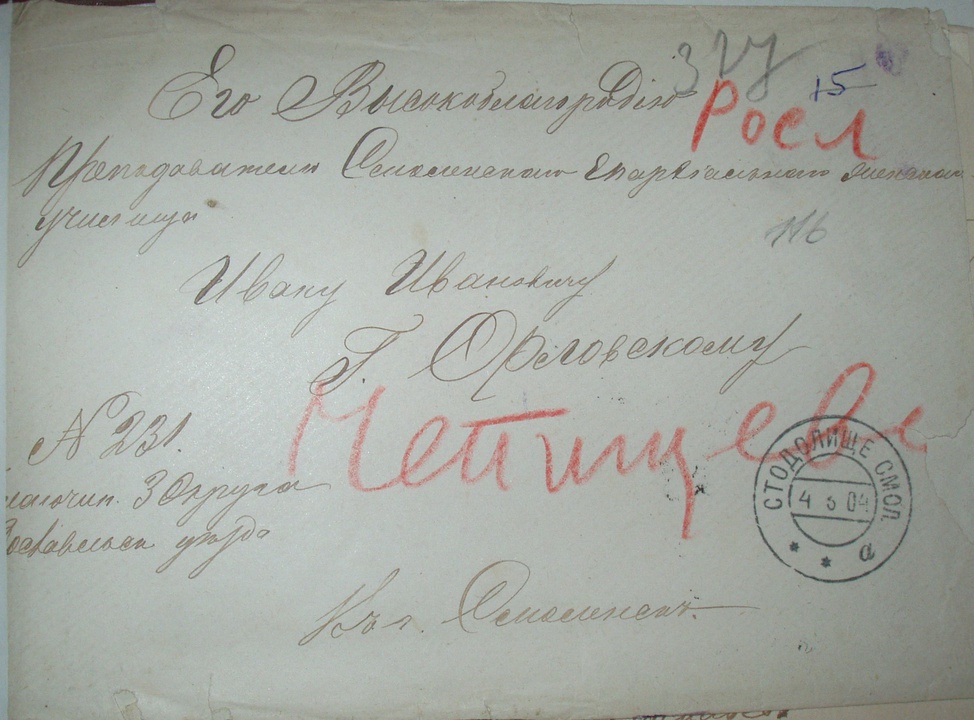 Его Высокоблагородію
327
15
Росл
Преподавателю Смоленскаго Епархіальнаго женскаго
училища
116
Ивану Ивановичу
Г. Орловскому
N 231.
3 Округа
уезда
СТОДОЛИЩЕ СМОЛ.
4 3 04
а
Въ г. Смоленскъ